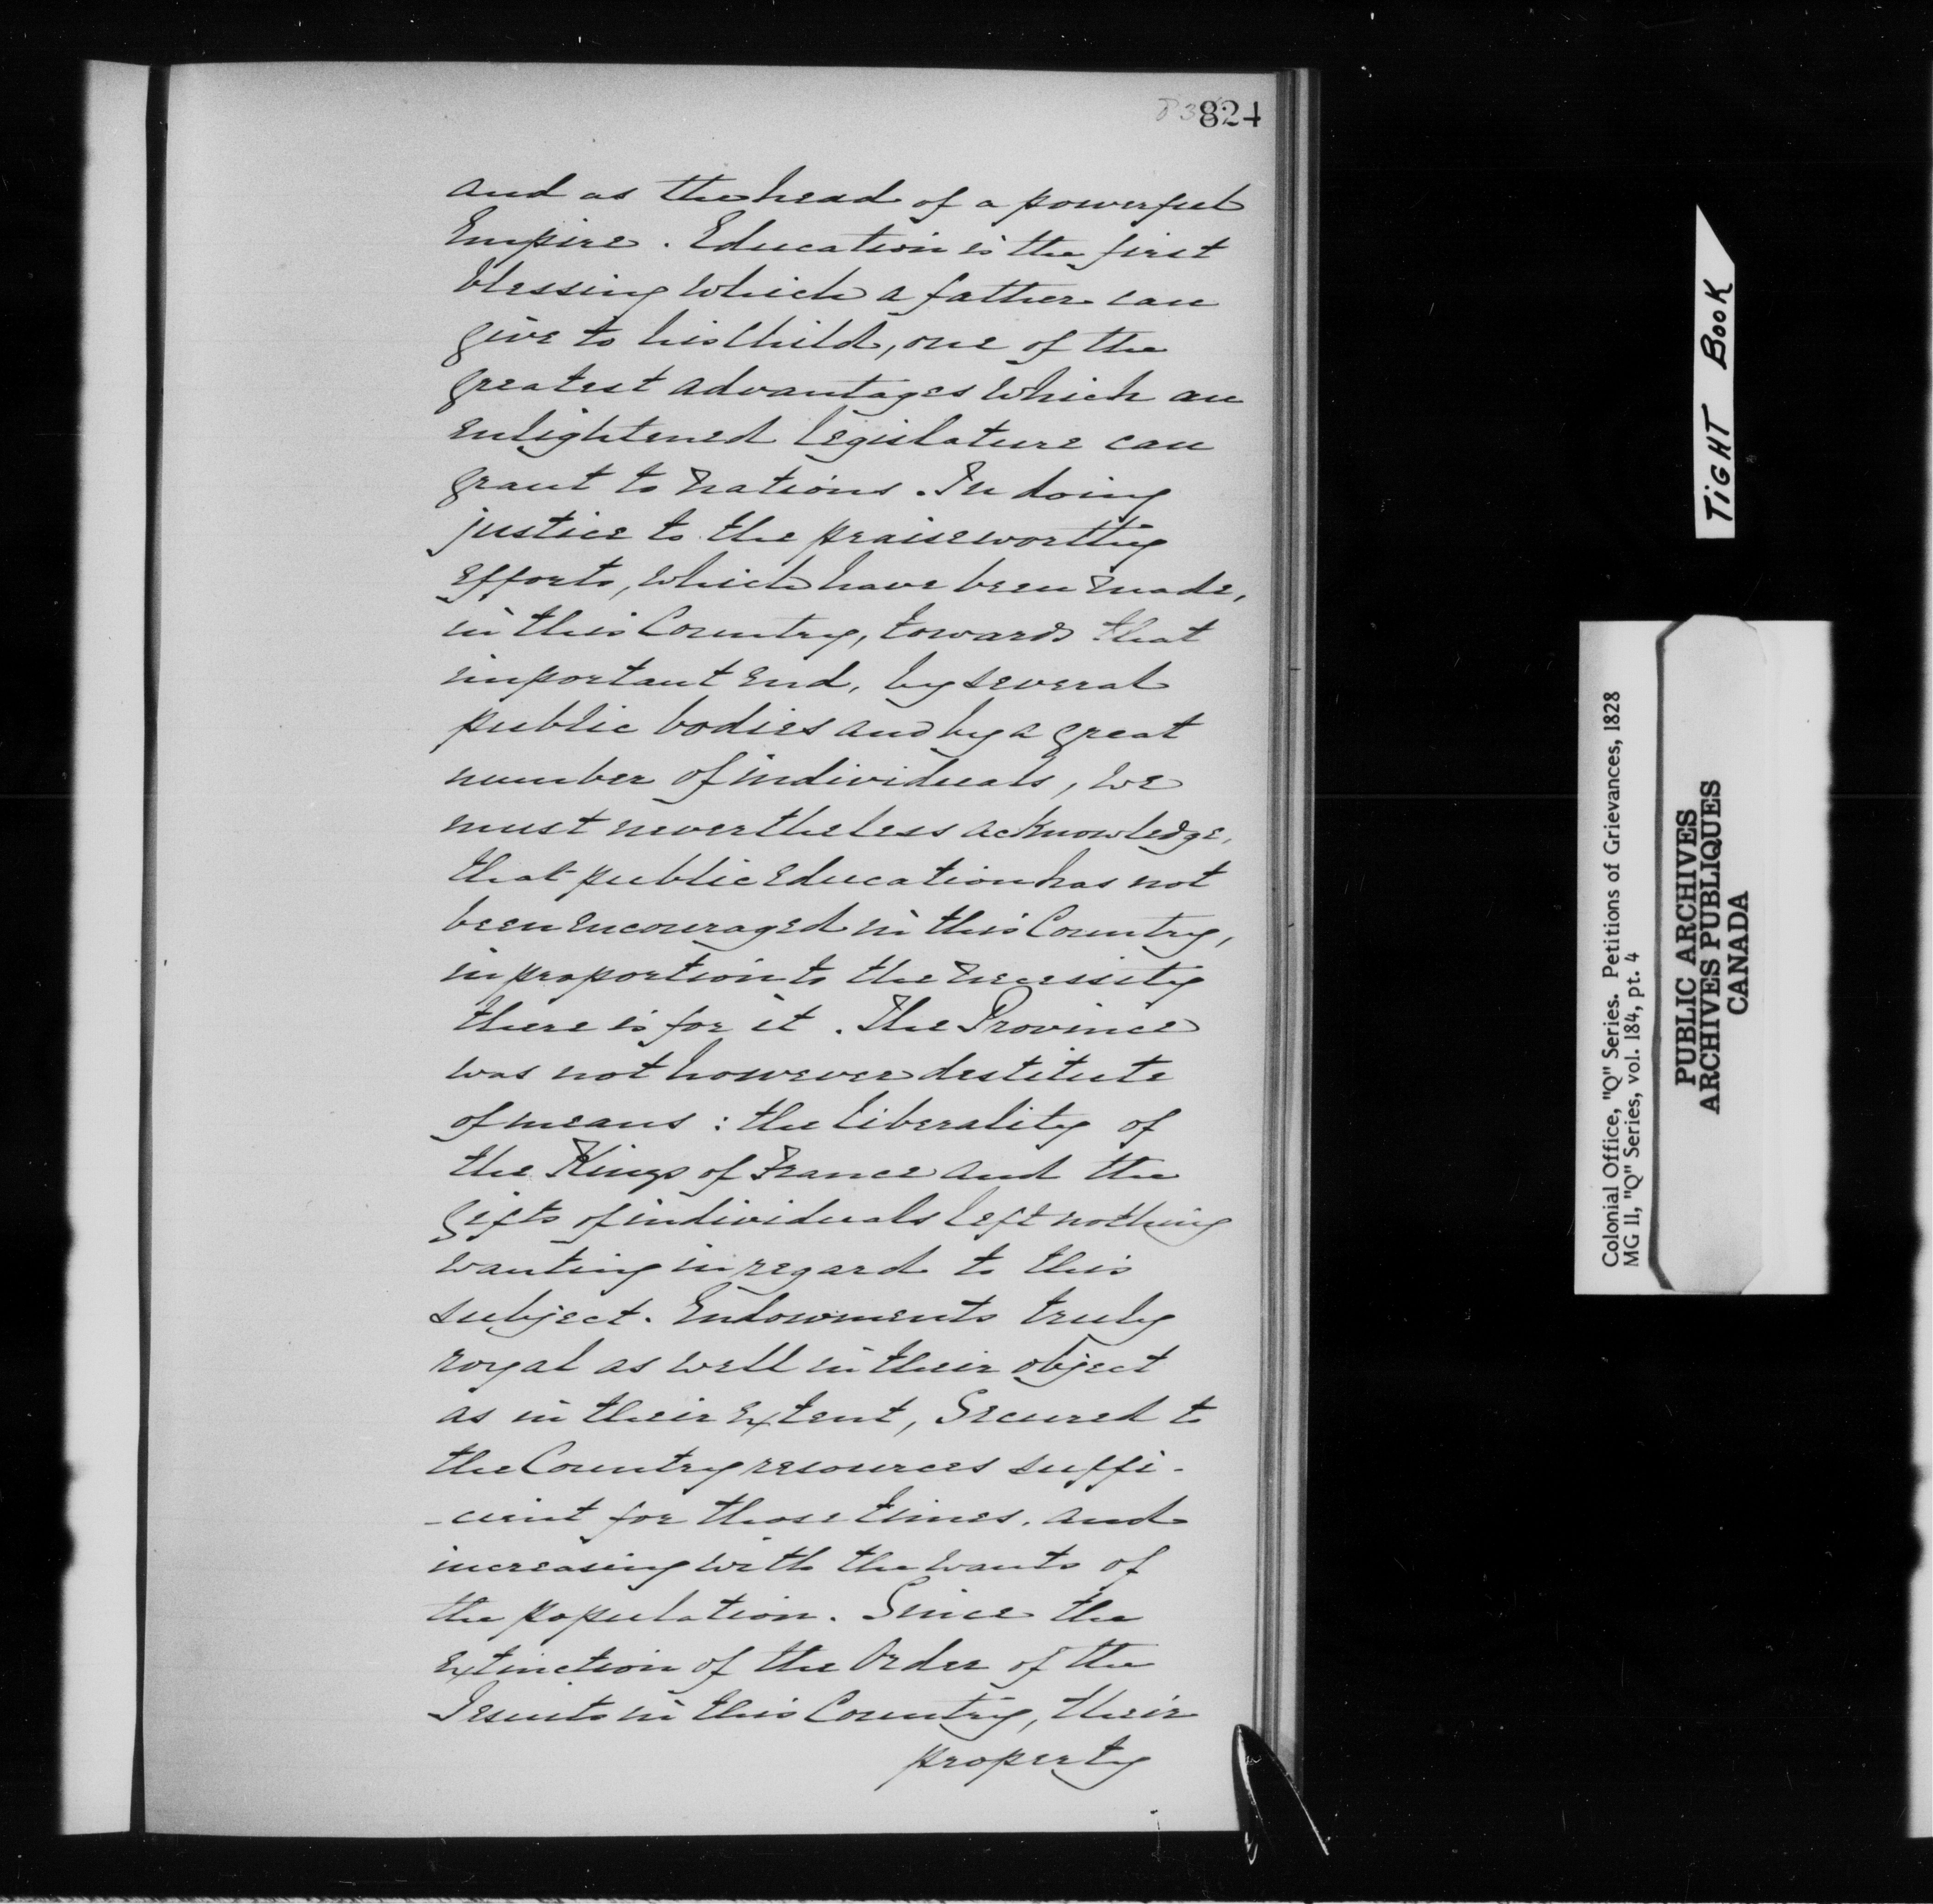 824
and as the head of a powerful
Empire. Education is the first
blessing which a father can
give to his Child, one of the
greatest advantages which an
enlightened legislature can
grant to nations. In doing
justice to the praiseworthy
efforts, which have been made,
in this Country, towards that
important end, by several
public bodies and by a great
number of individuals, we
must nevertheless acknowledge,
that public education has not
been encouraged in this Country,
in proportion to the necessity
there is for it. The Province
was not however destitute
of means: the liberality of
the Kings of France and the
gifts of individuals left nothing
wanting in regard to this
subject. Endowments truly
royal as well in their object
as in their extent, Secured to
the Country resources suffi-
-cient for those times, and
increasing with the wants of
the population. Since the
extinction of the Order of the
Jesuits in this Country, their
property
TIGHT BOOK
Colonial Office, "Q" Series. Petitions of Grievances, 1828
MG 11, "Q" Series, vol. 184, pt. 4
PUBLIC ARCHIVES
ARCHIVES PUBLIQUES
CANADA